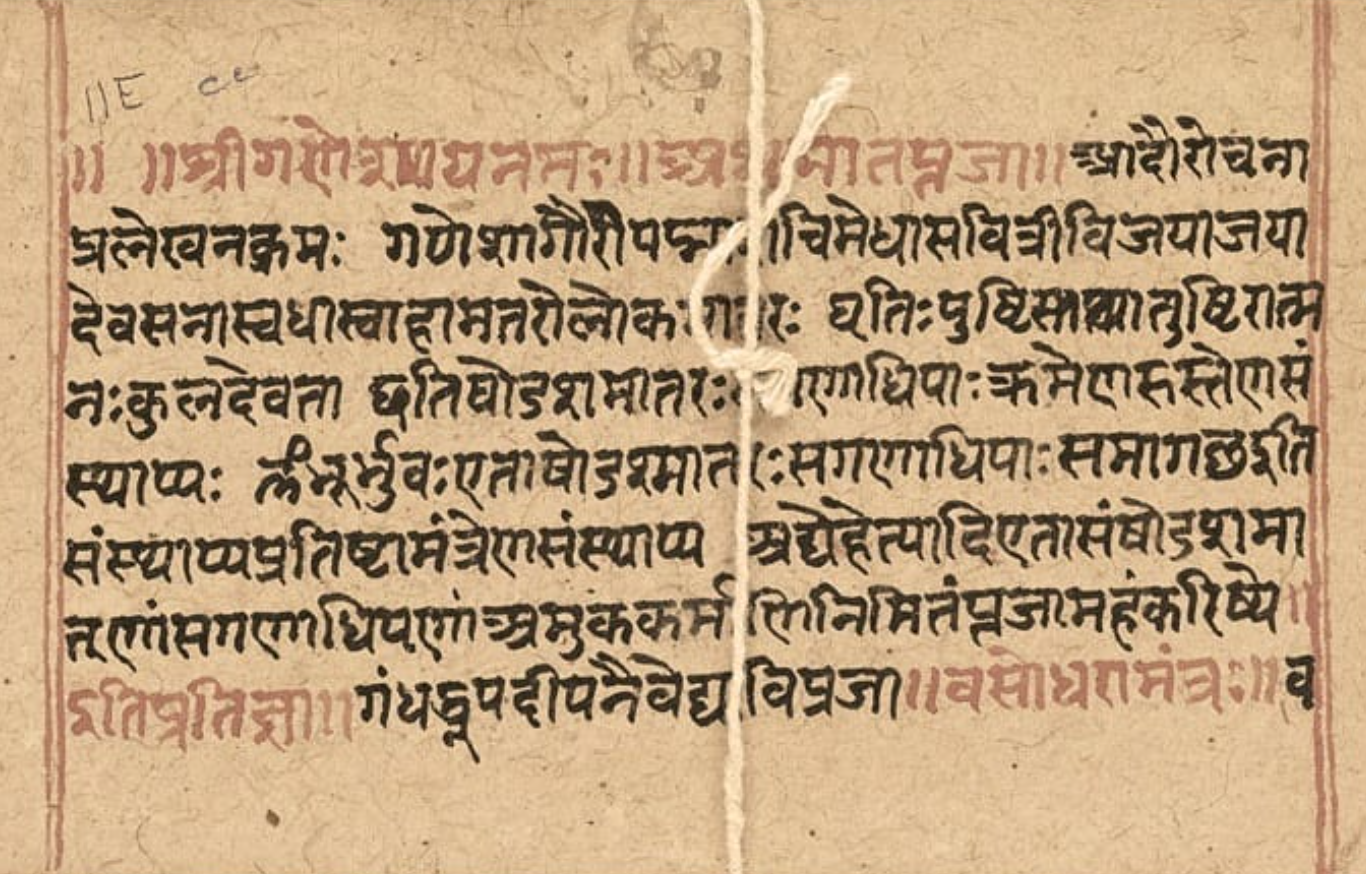 ॥ ॥श्रीगणेशायनमः॥अथ मातपूजा॥ आदौरोचना
प्रलेखनक्रमः गणेशागौरीपद्मा चिमेधासवित्रीविजयाजया
देवसनास्वधास्वाहामतरोलोक धृतिःपुष्टिस्तथातुष्टिरात्म
नःकुलदेवता इतिषोडशमातरः क्रमेणहस्तेणसं
स्थाप्यः ॐभूर्भुवःएताषोडश्मातरःसगणाधिपाःसमागछइति
संस्थाप्यप्रतिष्टामंत्रेणसंस्थाप्य अद्येहेत्यादिएतासंषोडशामा
तृणांसगणाधिपणांअमुककर्माणिनिमितंपूजामहंकरिष्ये॥
इतिप्रतिज्ञा॥गंधधूपदीपनैवेद्य विपूजा॥वसोधरामंत्रः॥व